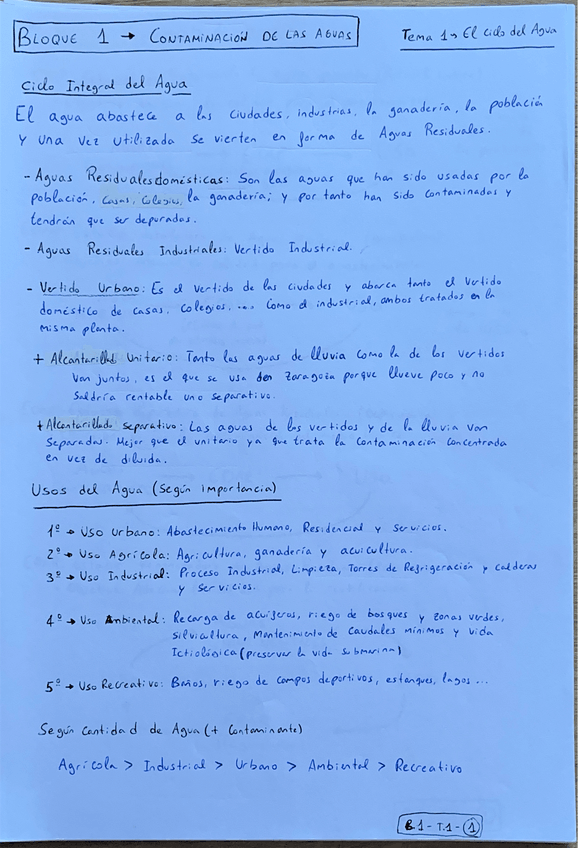 BLOQUE 1 → CONTAMINACION DE LAS AGUAS
Tema 1 → El Ciclo del Agua
Ciclo Integral del Agua
El agua abastece a las ciudades, industrias, la ganadería, la población
y una vez utilizada se vierten en forma de Aguas Residuales.
- Aguas Residuales domésticas: Son las aguas que han sido usadas por la
población, casas, colegios, la ganadería; y por tanto han sido contaminadas y
tendrán que ser depuradas.
- Aguas Residuales Industriales: Vertido Industrial.
- Vertido Urbano: Es el vertido de las ciudades y abarca tanto el vertido
doméstico de casas, colegios, ... como el industrial, ambos tratados en la
misma planta.
+ Alcantarillado Unitario: Tanto las aguas de lluvia como la de los vertidos
van juntos, es el que se usa en Zaragoza porque llueve poco y no
saldría rentable uno separativo.
+ Alcantarillado separativo: Las aguas de los vertidos y de la lluvia van
separadas. Mejor que el unitario ya que trata la contaminación concentrada
en vez de diluida.
Usos del Agua (Según Importancia)
1º → Uso Urbano: Abastecimiento Humano, Residencial y servicios.
2º → Uso Agrícola: Agricultura, ganadería y acuicultura.
3º → Uso Industrial: Proceso Industrial, Limpieza, Torres de Refrigeración y calderas
y servicios.
4º → Uso Ambiental: Recarga de acuíferos, riego de bosques y zonas verdes,
silvicultura, Mantenimiento de caudales mínimos y vida
Ictiológica (preservar la vida submarina)
5º → Uso Recreativo: Baños, riego de campos deportivos, estanques, lagos ...
Según Cantidad de Agua (+ Contaminante)
Agrícola > Industrial > Urbano > Ambiental > Recreativo
B.1 - T.1 - 1